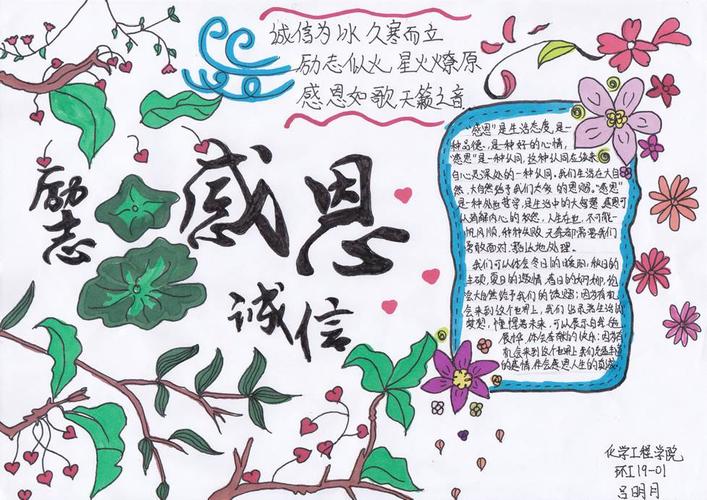 诚信为冰 久寒而立
励志似火 星火燎原
感恩如歌 天籁之音
励志
感恩
诚信
"感恩"是生活态度,是一
种品德,是一种好的心情,
"感恩"是一种认同,这种认同应该来
自心灵深处的一种认同。我们生活在大自
然,大自然给予我们太多的恩赐。"感恩"
是一种处世哲学,是生活中的大智慧,感恩可
以消解内心的积怨,人生在世,不可能一
帆风顺,种种失败、无奈都需要我们
勇敢面对、豁达地处理。
我们可以体会冬日的暖阳,秋日的
丰硕,夏日的激情,春日的
会大自然给予我们的
会来到这个世界上,我们
梦想,憧憬着未来,可以展示自我
体会奉献的快乐;因为有
机会来到这个世界上我们
的感情,体会感恩人生的真诚。
化学工程学院
环工19-01
吕明月